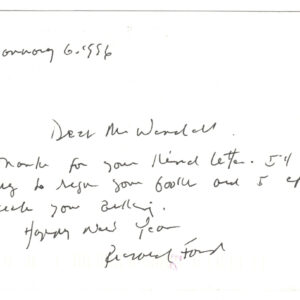 January 6. 1996
Dear Mr Wendell.
Thanks for your kind letter. I'll
to sign your book and I
your asking.
Happy New Year
Richard Ford